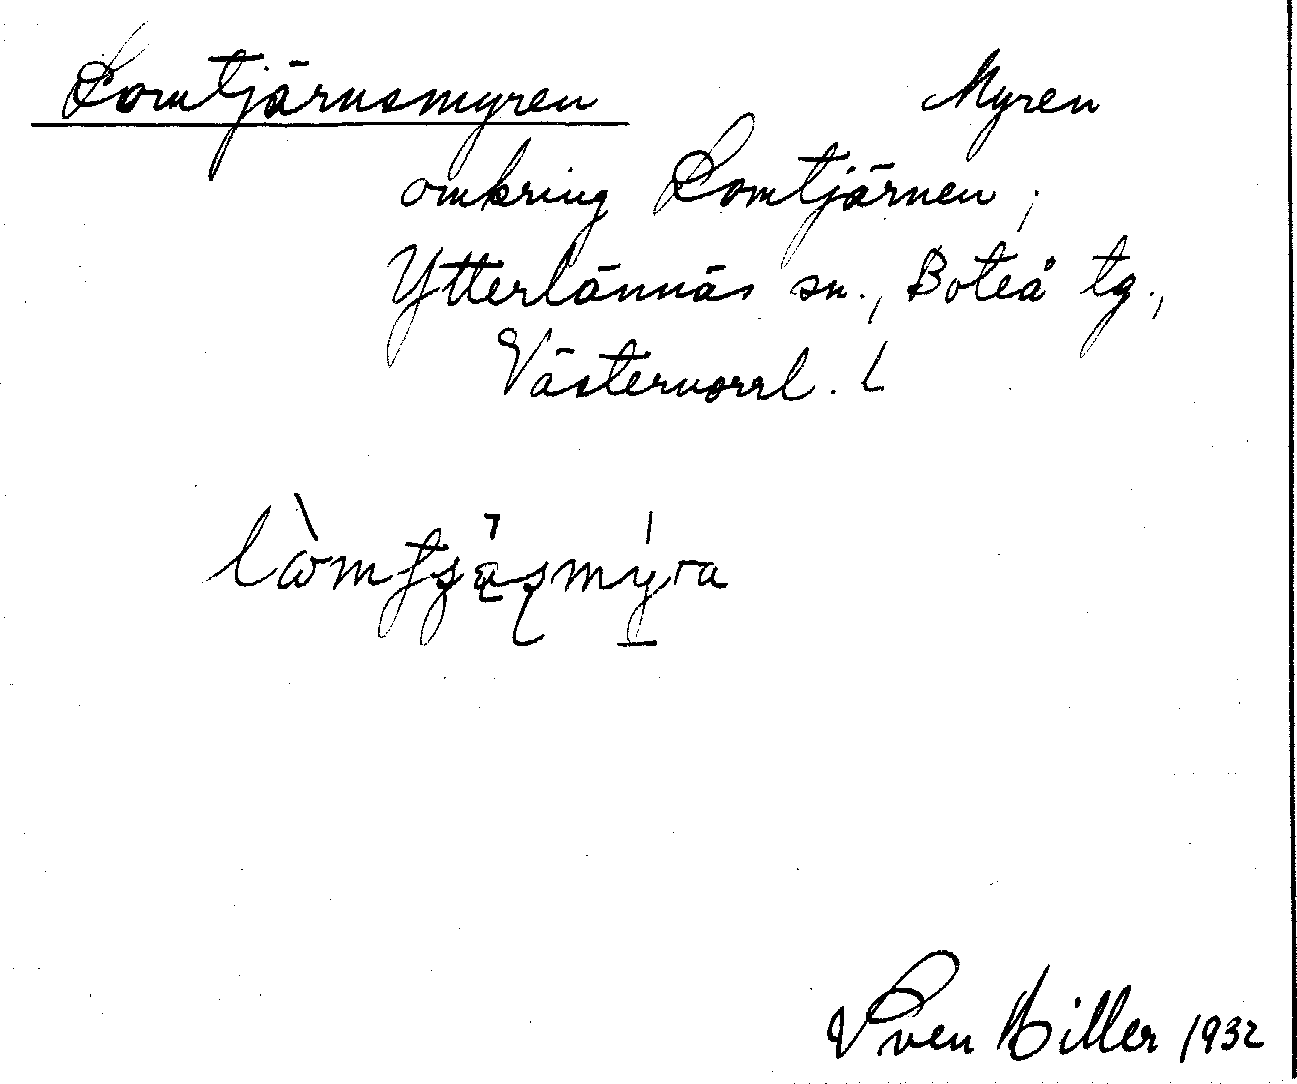 Lomtjärnsmyren Myren
omkring Lomtjärnen,
Ytterlännäs sn., Boteå tg.,
Västernorrl. l
Sven Hiller 1932